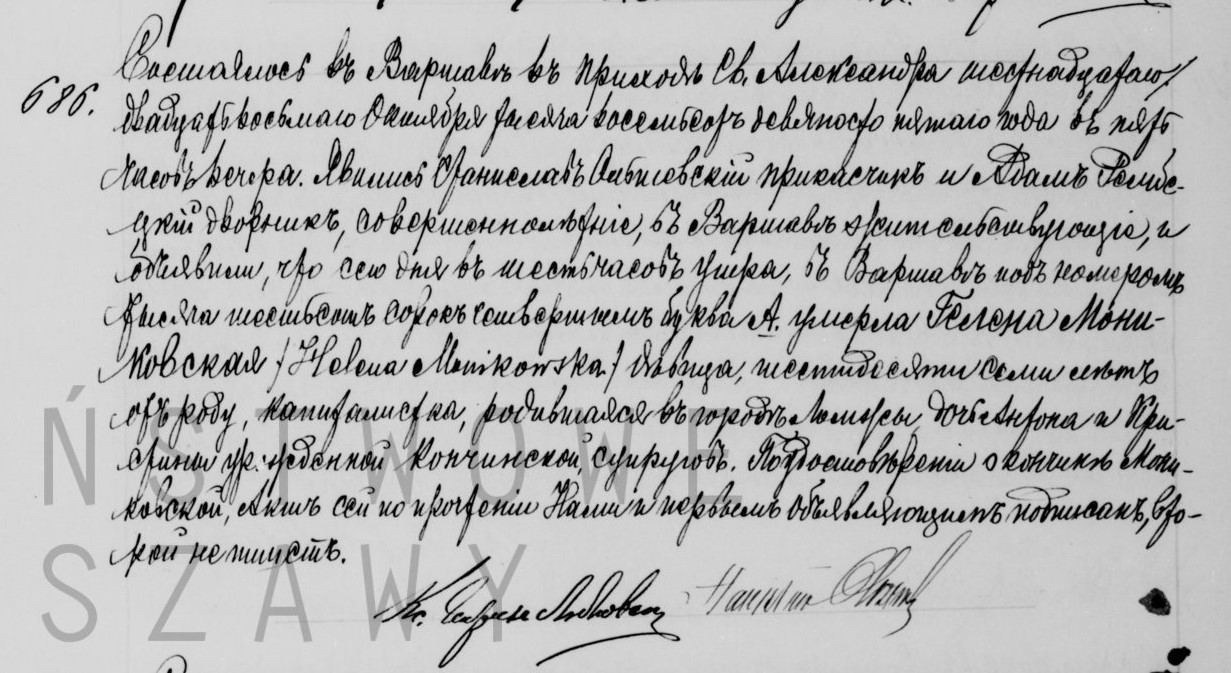 686.
Состоялось въ Варшавѣ въ приходѣ Св. Александра шестнадцатаго/
двадцать восьмаго Октября тысяча восемьсотъ девяносто пятаго года въ пять
часовъ вечера. Явились Станиславъ Ольшевскій прикасчикъ и Адамъ
дворникъ, совершеннолѣтніе, въ Варшавѣ жительствующіе, и
объявили, что сего дня въ шесть часовъ утра, въ Варшавѣ подъ номеромъ
тысяча шестьсотъ сорокъ четвертымъ буква А. умерла Гелена Мони-
ковская /Helena Monikowska/ дѣвица, шестидесяти семи лѣтъ
отъ роду, капиталистка, родившаяся въ городѣ дочь Антона и Кри-
стины урожденной Кончинской, супруговъ. По удостовѣреніи о кончинѣ Мони-
ковской, Актъ сей по прочтеніи Нами и первымъ объявляющимъ подписанъ, вто-
рой не пишетъ.
Кс.
ŃSTWOWE
SZAWY